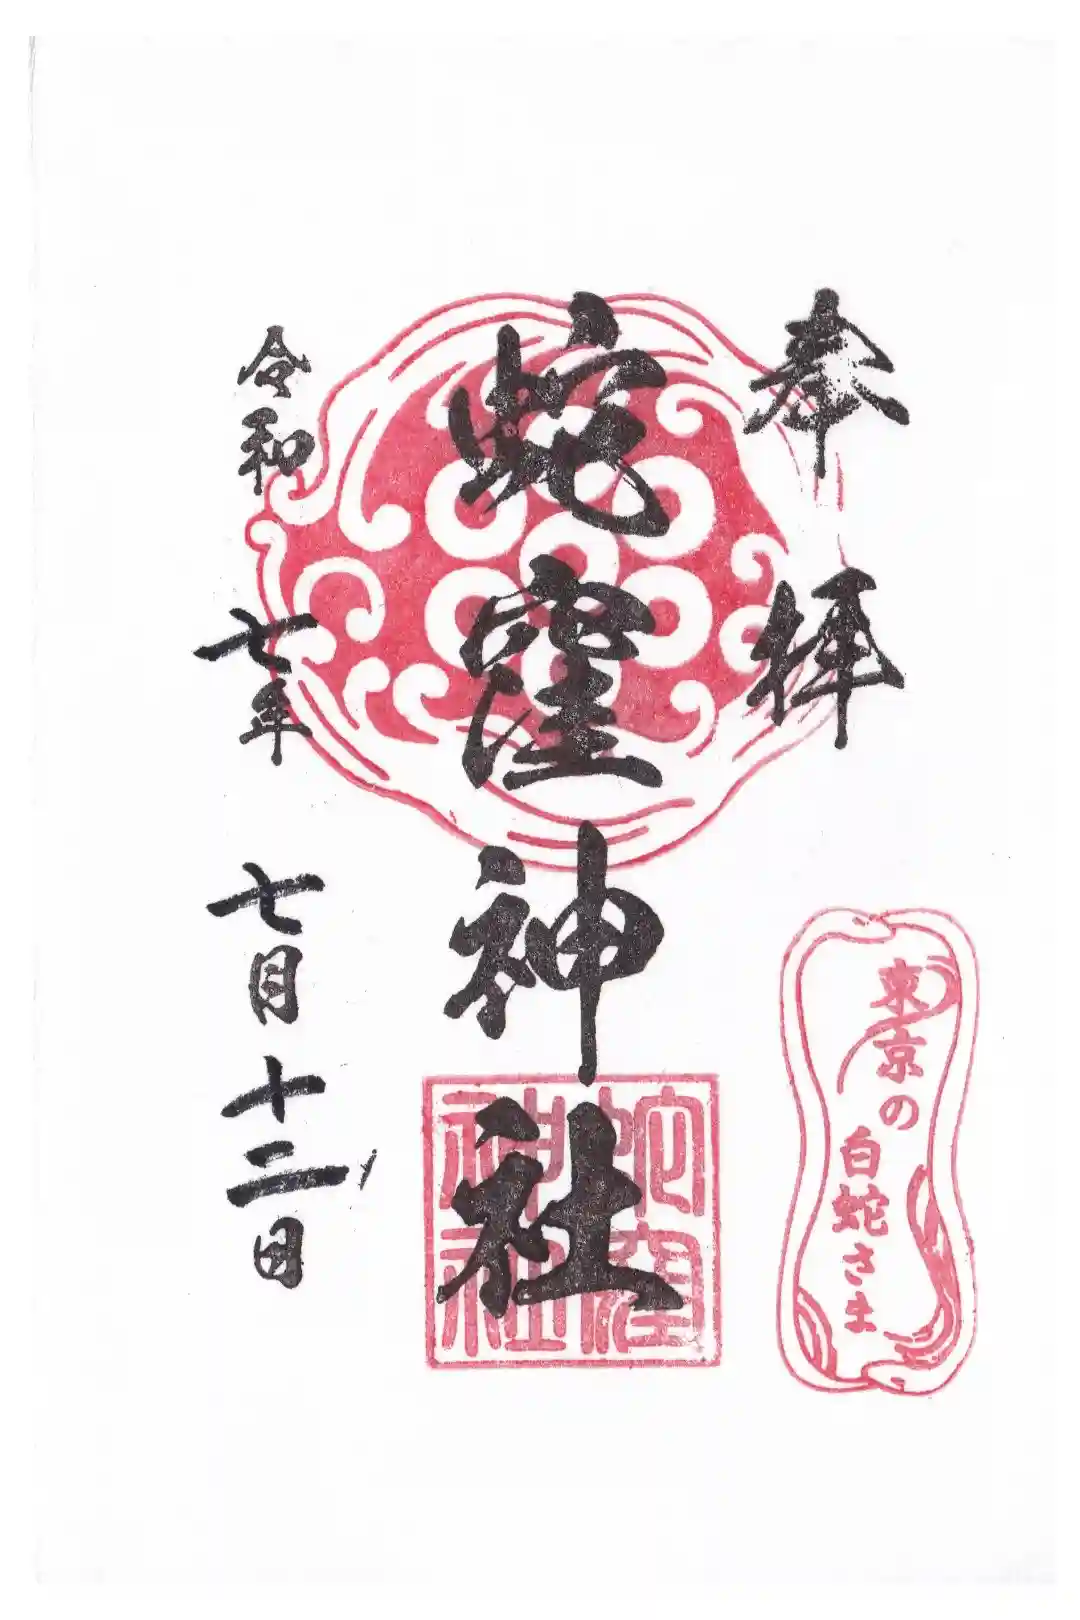 奉拝
蛇窪神社
令和七年七月十二日
東京の
白蛇さま
蛇窪
神社